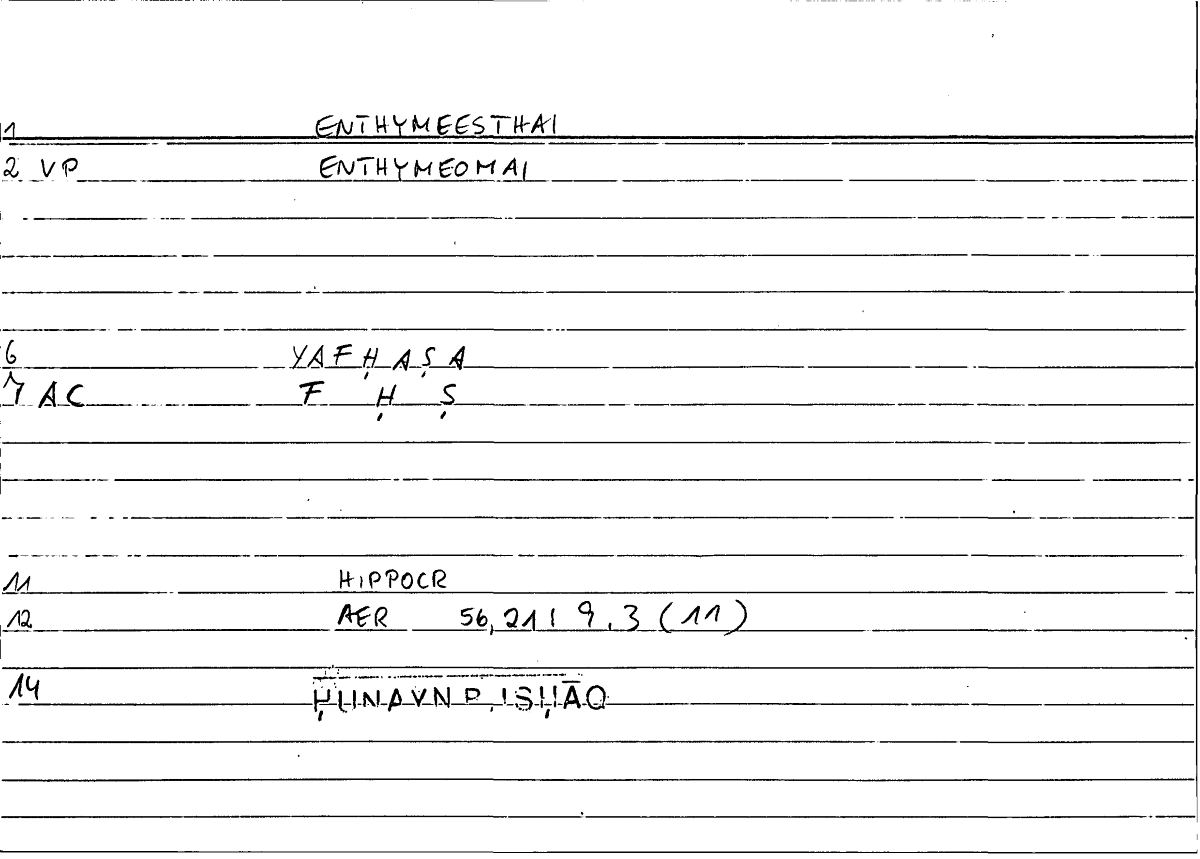 1 ENTHYMEESTHAI
2 VP ENTHYMEOMAI
6 YAFḤAṢA
7 AC F Ḥ Ṣ
11 HIPPOCR
12 AER 56,21 ; 9.3 (11)
14 ḤUNAYN B. ISḤĀQ